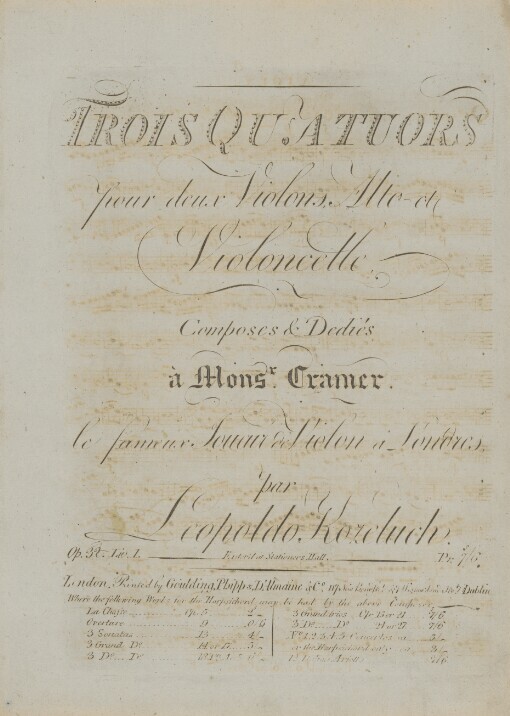 TROIS QUATUORS
pour deux Violons, Alto et
Violoncelle
Composes & Dediés
à Monsr. Cramer.
le fameux Joueur de Violon à Londres
par
Leopoldo Kozeluch.
Op. 32. Liv. 1. Enter'd at Stationers Hall. Pr. 7/6
London, Printed by Goulding, Phipps & D'Almaine & Co. Dublin
Where the following Works for the Harpsichord may be had by the above Composer
La Chasse Op. 5
Overture 9 0/6
3 Sonatas 13 4/-
3 Grand Do. 14 or 17 5/-
3 Do. Do.
3 Grand trios Op. 21 7/6
3 Do. Do. 27 7/6
No. 1. 2. 3. 4. 5 Concertos 5/-
or the Harpsichord only 3/-
7/6